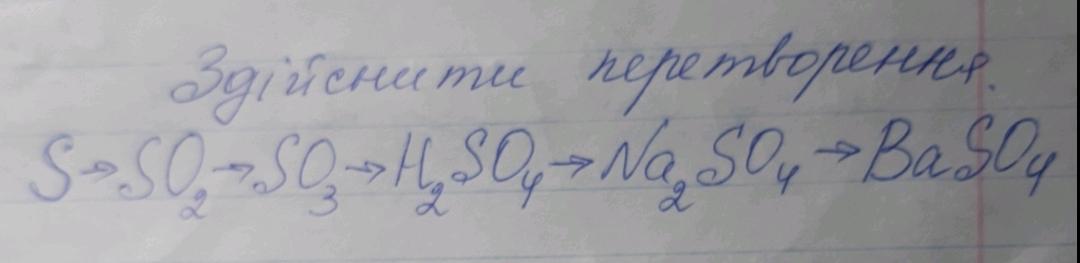 Здійснити перетворення.
S→SO₂→SO₃→H₂SO₄→Na₂SO₄→BaSO₄